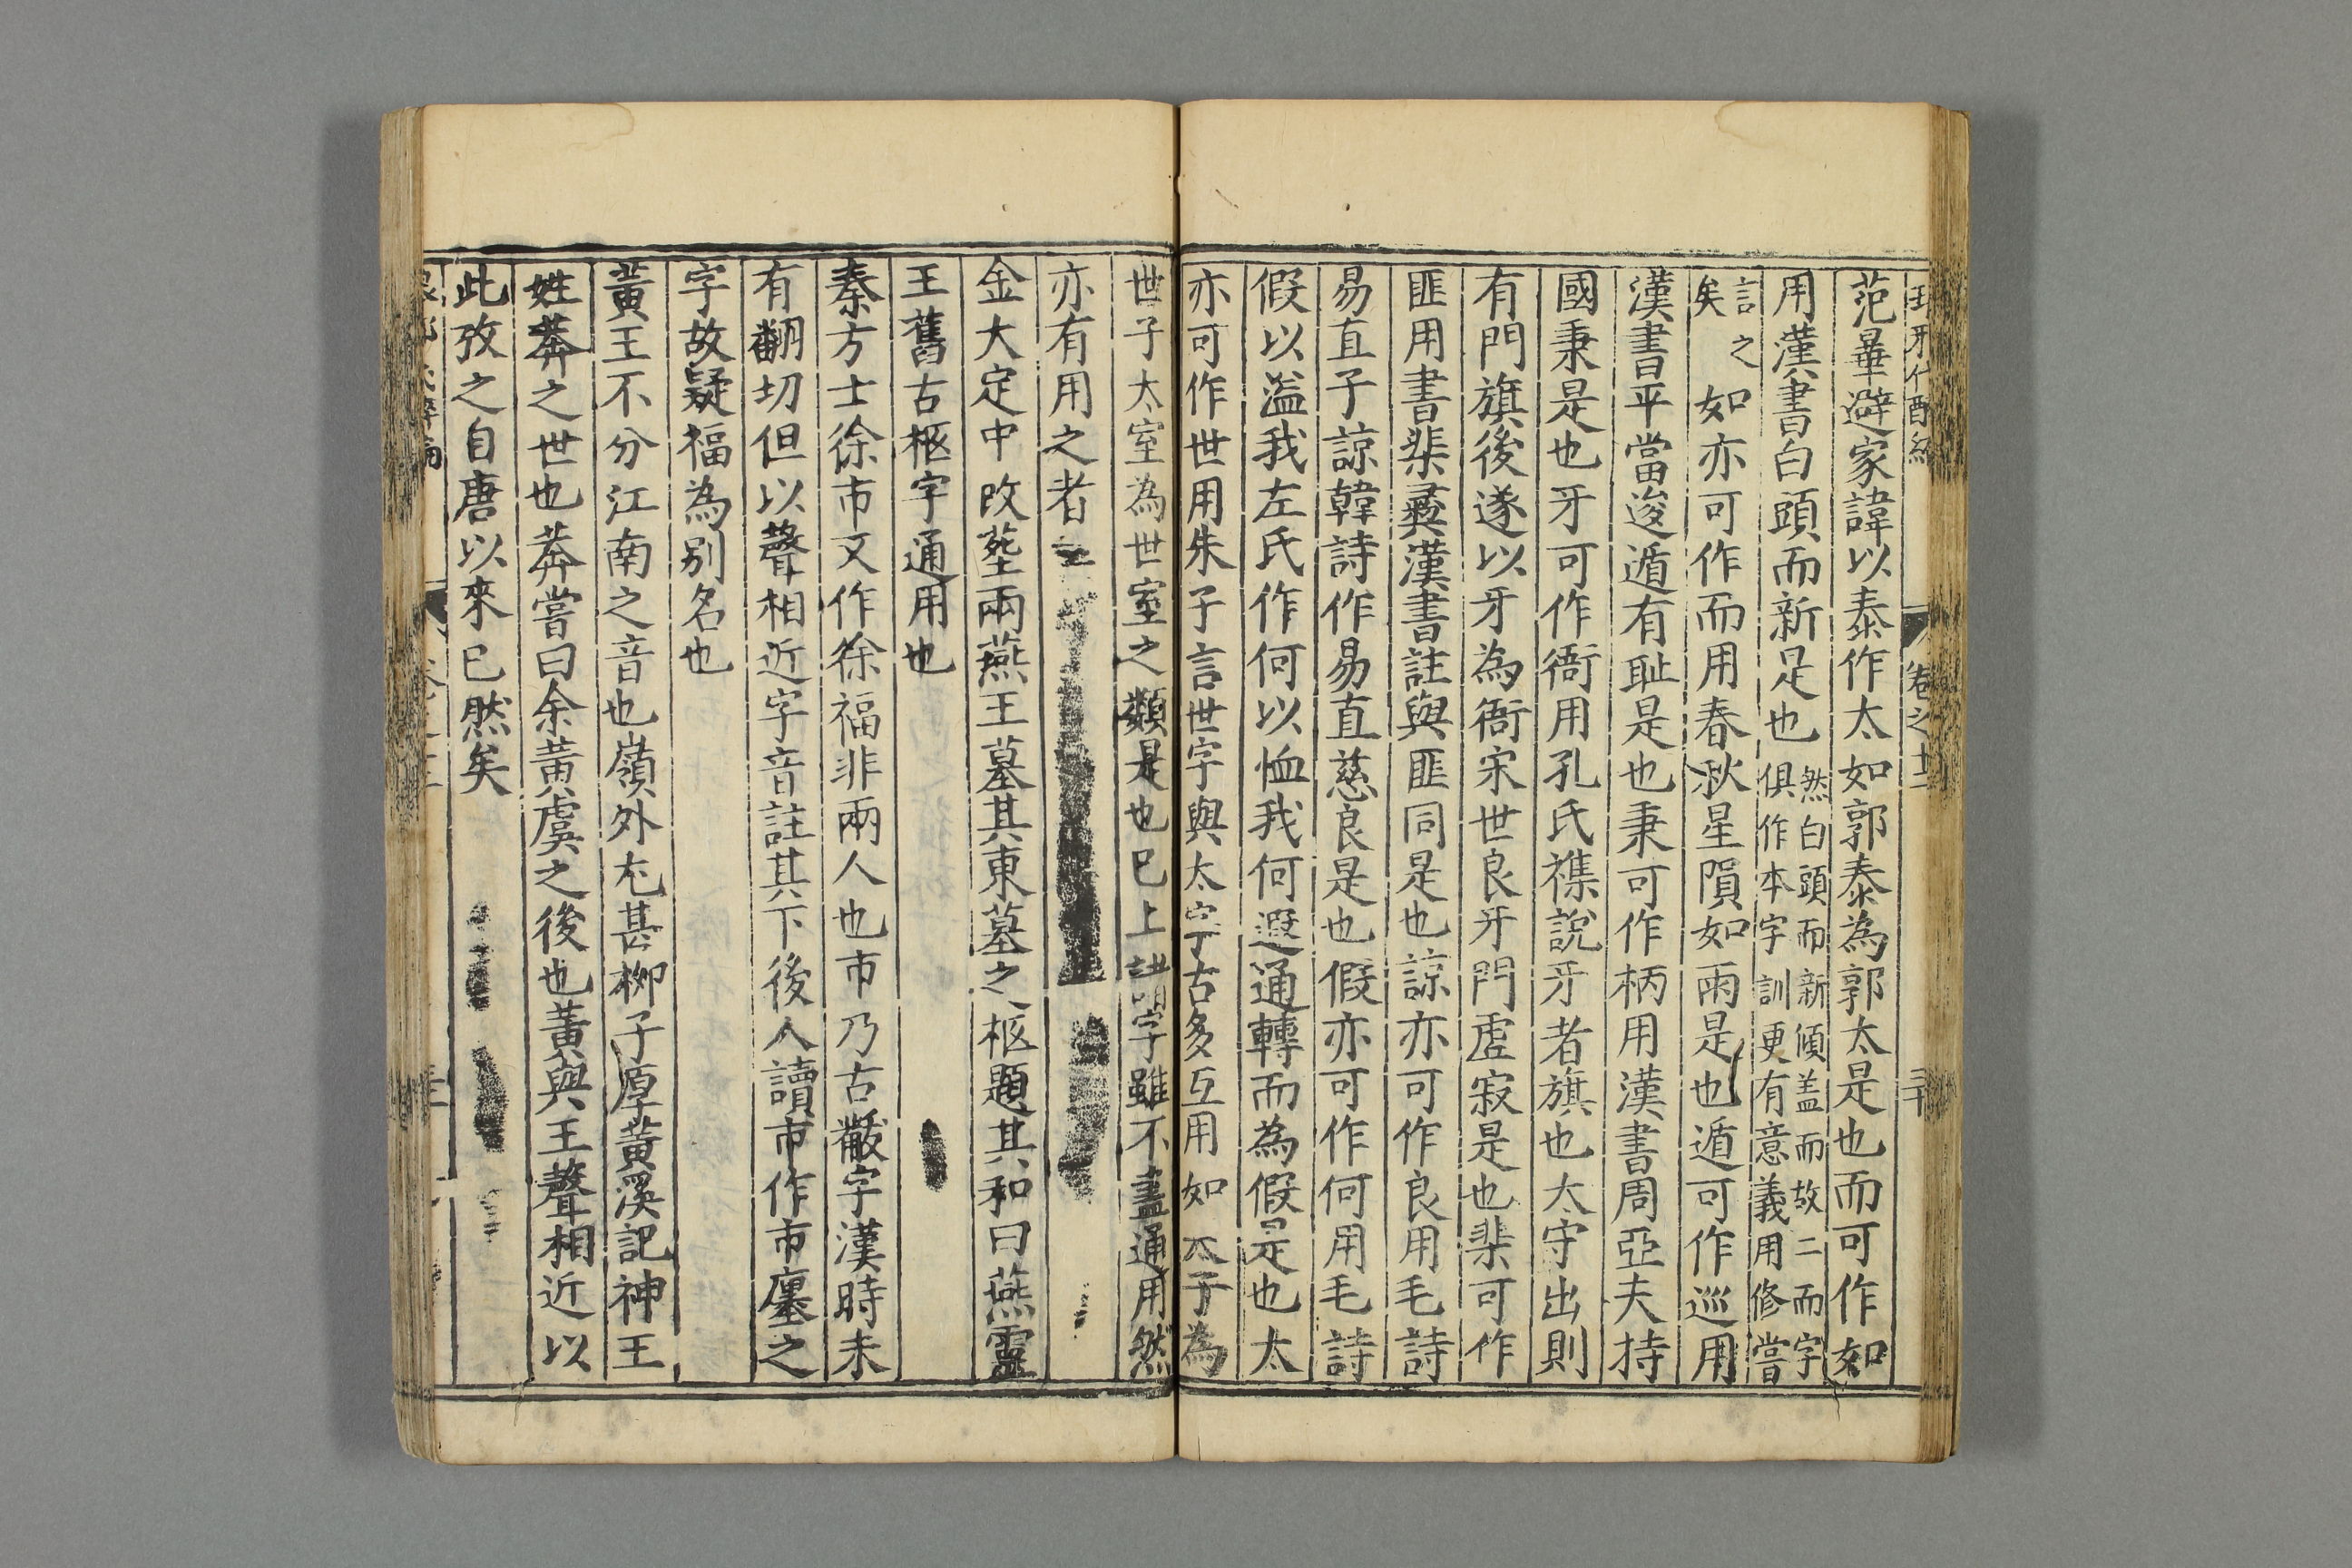 卷之十二
范曄避家諱以泰作太如郭泰為郭太是也而可作如
用漢書白頭而新是也然白頭而新傾盖而故二而字
俱作本字訓更有意義用修嘗
言之
矣如亦可作而用春秋星隕如雨是也遁可作巡用
漢書平當逡遁有耻是也秉可作柄用漢書周亞夫持
國秉是也牙可作衙用孔氏襍說牙者旗也太守出則
有門旗後遂以牙為衙宋世良牙門虛寂是也棐可作
匪用書棐彝漢書註與匪同是也諒亦可作良用毛詩
易直子諒韓詩作易直慈良是也假亦可作何用毛詩
假以溢我左氏作何以恤我何遐通轉而為假是也太
亦可作世用朱子言世字與太字古多互用如太子為
世子太室為世室之類是也已上字雖不盡通用然
亦有用之者
金大定中改塟兩燕王墓其東墓之柩題其和曰燕靈
王舊古柩字通用也
秦方士徐市又作徐福非兩人也市乃古黻字漢時未
有翻切但以聲相近字音註其下後人讀市作市廛之
字故疑福為別名也
黃王不分江南之音也嶺外尤甚柳子厚黃溪記神王
姓莽之世也莽嘗曰余黃虞之後也黃與王聲相近以
此攷之自唐以來已然矣